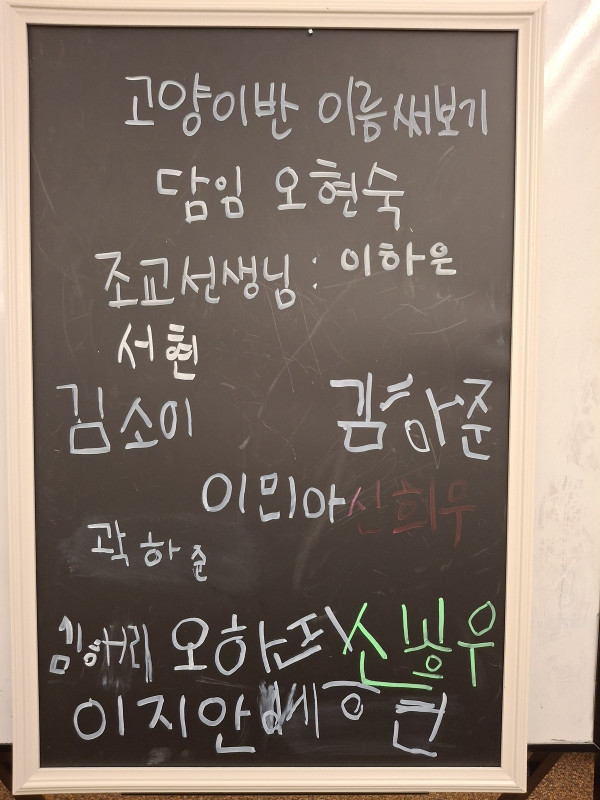 고양이반 이름써보기
담임 오현숙
조교선생님 : 이하은
서현
김소이 김하준
이민아 신희우
곽하준
오하준 신승우
이지안